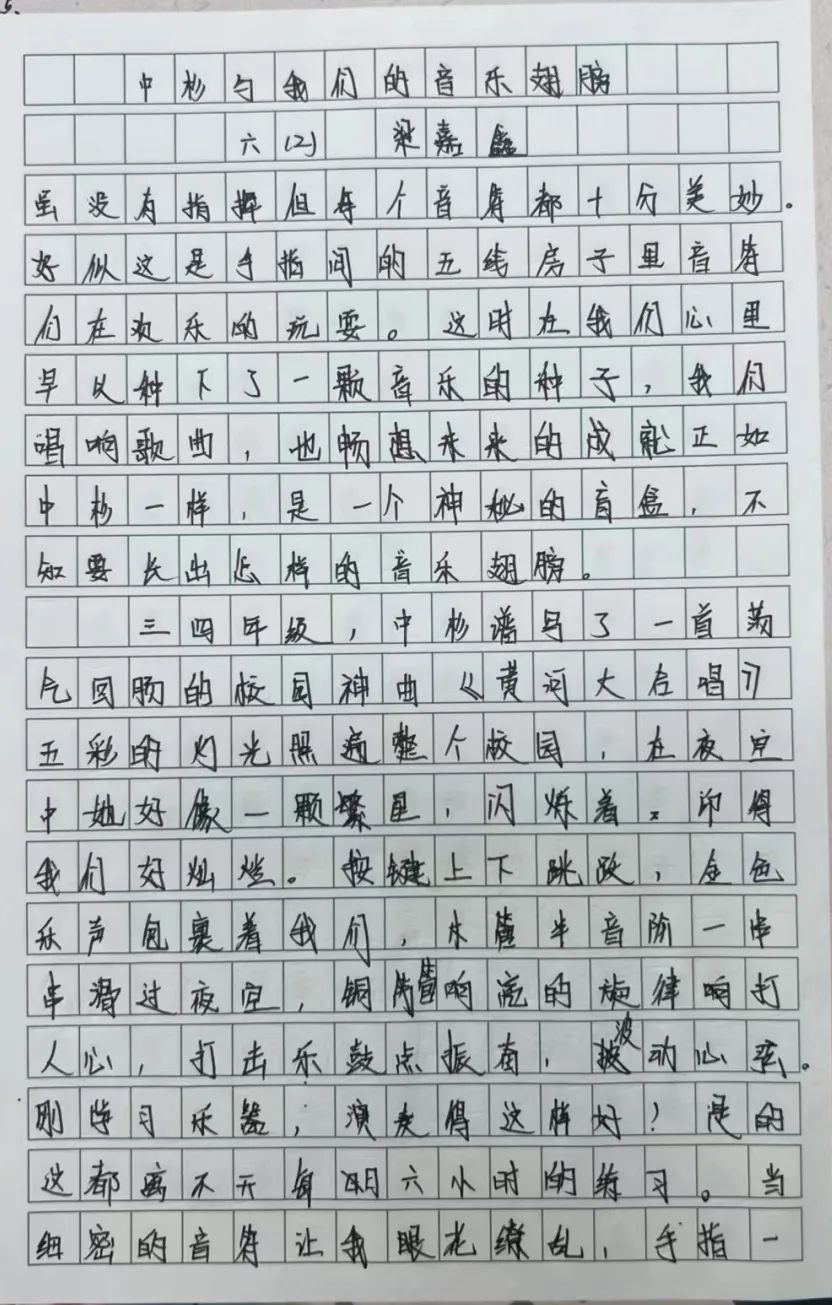 5.
中杉与我们的音乐翅膀
六(2) 梁嘉鑫
虽没有指挥但每个音符都十分美妙。
好似这是手指间的五线房子里音符
们在欢乐的玩耍。这时在我们心里
早以种下了一颗音乐的种子，我们
唱响歌曲，也畅想未来的成就正如
中杉一样，是一个神秘的盲盒，不
知要长出怎样的音乐翅膀。
三四年级，中杉谱写了一首荡
气回肠的校园神曲《黄河大合唱》
五彩的灯光照遍整个校园，在夜空
中她好像一颗繁星，闪烁着。印得
我们好灿烂。按键上下跳跃，金色
乐声包裹着我们，木管半音阶一串
串滑过夜空，铜管响亮的旋律响打
人心，打击乐鼓点振奋，波动心弦。
刚学习乐器，演奏得这样好！是的
这都离不开每周六小时的练习。当
细密的音符让我眼花缭乱，手指一